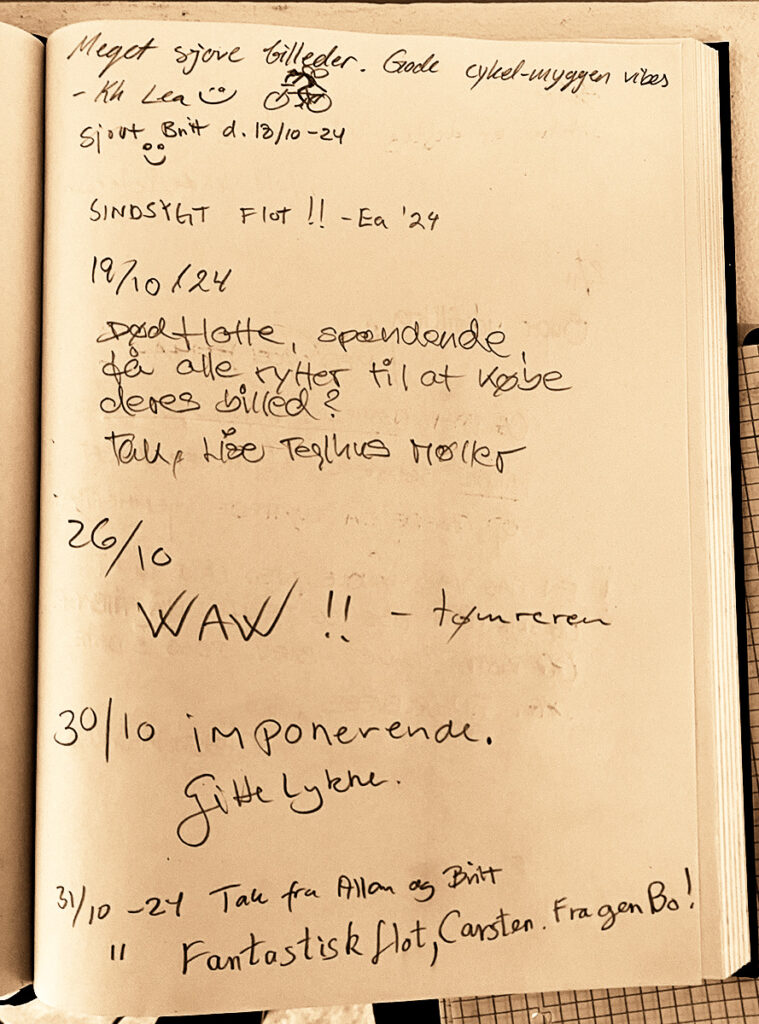 Meget sjove billeder. Gode cykel-myggen vibes
- Kh Lea
sjovt Britt d. 18/10-24
SINDSYGT FLOT !! - Ea '24
19/10/24
Dødflotte, spændende,
få alle rytter til at købe
deres billed?
Tak, Lise Teglhus Møller
26/10
WAW !! - tømreren
30/10 imponerende.
Gitte Lykke.
31/10 -24 Tak fra Allan og Britt
" Fantastisk flot, Carsten. Fra genBo!